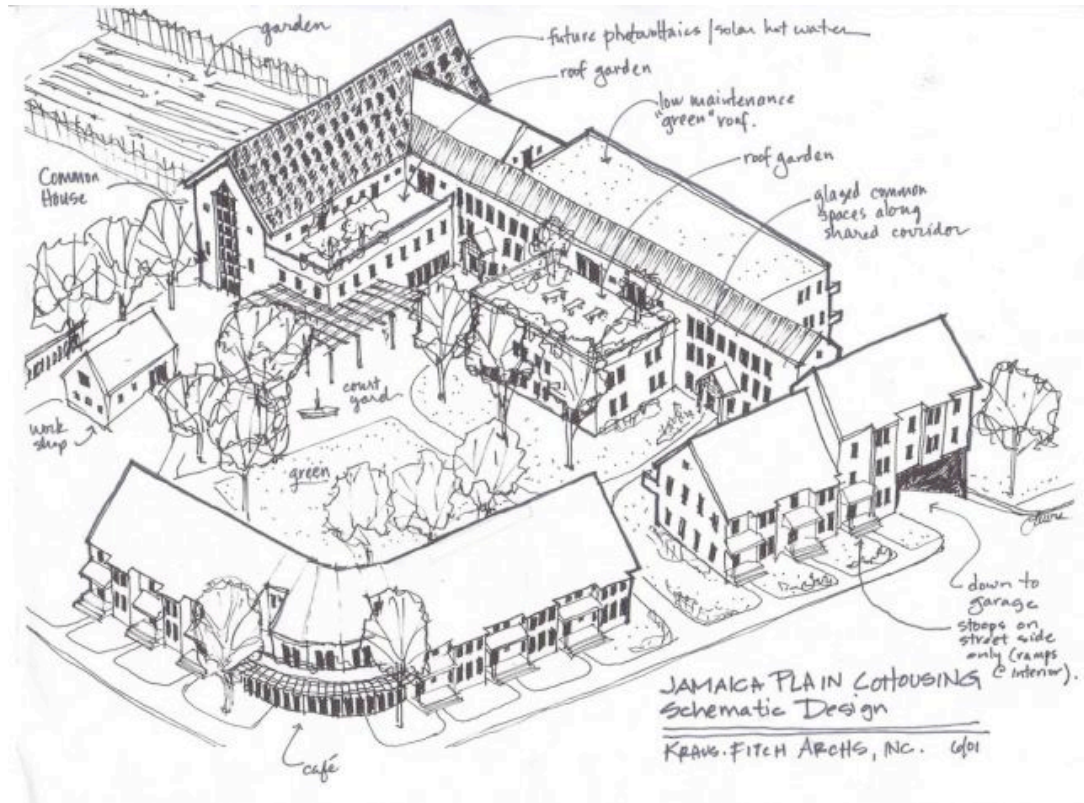 garden
future photovoltaics/solar hot water
roof garden
low maintenance
"green" roof.
roof garden
glazed common
spaces along
shared corridor
Common
House
court
yard
work
shop
green
down to
garage
stoops on
street side
only (ramps
@ interior).
café
JAMAICA PLAIN COHOUSING
Schematic Design
KRAUS-FITCH ARCHS, INC. 6/01